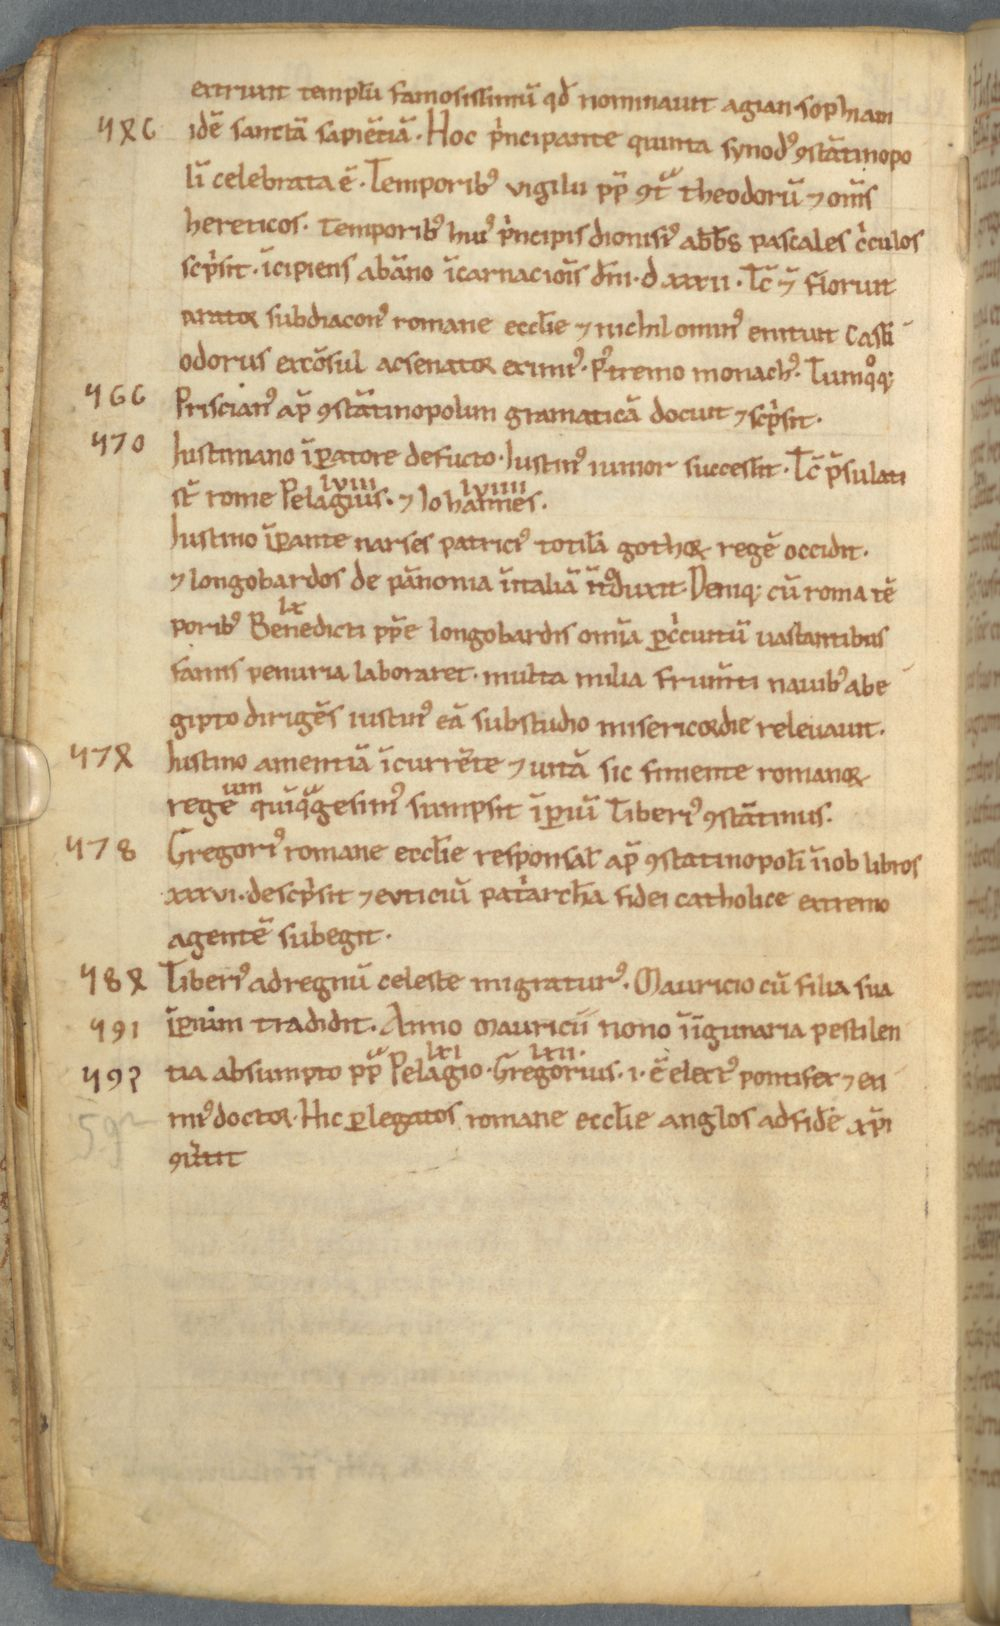 extruit templū famosissimū qd̄ nominauit agian sophiam
5x6 idē sanctā sapiētiā. Hoc prīncipante quinta synodꝰ ꝯstātinopo
li celebrata ē. Temporibꝰ vigilii pp̄ ꝯt͛ theodorū ⁊ om̄s
hereticos. Temporibꝰ huiꝰ prīncipis dionisiꝰ abb̄s pascales cīculos
scp̄sit. īcipiens ab āno īcarnaciōis dn̄i. d xxxii. Tc̄ ⁊ floruit
arator subdiaconꝰ romane ecclīe ⁊ nichilominꝰ enituit cassi
odorus excōsul ac senator eximiꝰ. pꝰtremo monachꝰ. Tumqͦqꝫ
566 Priscianꝰ ap̄ ꝯstātinopolim gramaticā docuit ⁊ scp̄sit.
570 Iustiniano īꝑatore defūcto. Iustinꝰ iunior successit. Tc̄ p̄sulati
st̄ rome Pelagius. lviii ⁊ Iohannes. lviiii
Iustino īꝑante narses patriciꝰ totilā gothoꝝ regē occidit.
⁊ longobardos de pānonia ī italiā ītͦduxit. Deniqꝫ cū roma tē
poribꝰ Benedicti lx pp̄e longobardis omīa ꝑ cīcuitū uastantibus
famis penuria laboraret. multa milia frum̄ti nauibꝰ ab e
gipto dirigēs iustinꝰ eā sub studio misericordie releuauit.
57x Iustino amentiā īcurrēte ⁊ uitā sic finiente romanoꝝ
regē um quīqͣgesimꝰ sumpsit īꝑiū Tiberiꝰ ꝯstātinus.
578 Gregoriꝰ romane ecclīe responsal̄ ap̄ ꝯstatinopolī ī iob libros
xxxvi. descp̄sit ⁊ euticiū patīarchā fidei catholice extremo
agentē subegit.
58x Tiberiꝰ ad regnū celeste migraturꝰ. Mauricio cū filia sua
591 īꝑium tradidit. Anno mauricii nono īguinaria pestilen
592 tia absumpto pp̄ͣ Pelagio lxi. Gregorius lxii. i. ē electꝰ pontifex ⁊ exi
592 miꝰ doctor. Hic ꝑ legatos romane ecclīe anglos ad fidē xp̄i
ꝯūtit